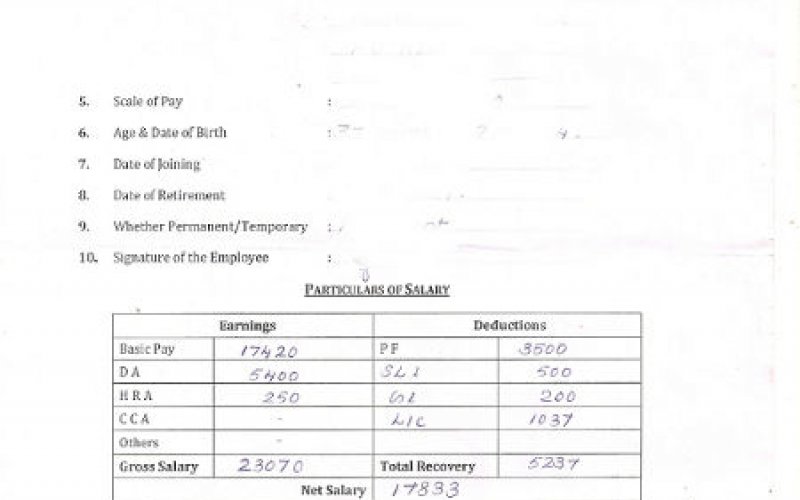 5. Scale of Pay :
6. Age & Date of Birth :
7. Date of Joining
8. Date of Retirement
9. Whether Permanent/Temporary :
10. Signature of the Employee :
PARTICULARS OF SALARY
Earnings Deductions
Basic Pay 17420 PF 3500
DA 5400 SLI 500
HRA 250 GI 200
CCA - LIC 1037
Others -
Gross Salary 23070 Total Recovery 5237
Net Salary 17833